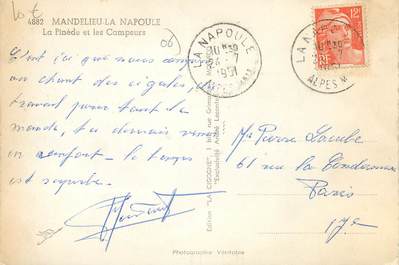 Lot 6
4882 MANDELIEU-LA NAPOULE
La Pinède et les Campeurs
06
C'est ici que nous campons
au chant des cigales, du
travail pour tout le
monde, tu devrais venir
en renfort - le temps
est superbe.
Edition "LA CIGOGNE"
Photographie Véritable
LA NAPOULE
10 H 30
24 - 7
1951
ALPES MARMES
LA NAPOULE
10 H 30
1951
ALPES M
12F
Mr Pierre Laube
61 rue la Condamine
Paris
17e